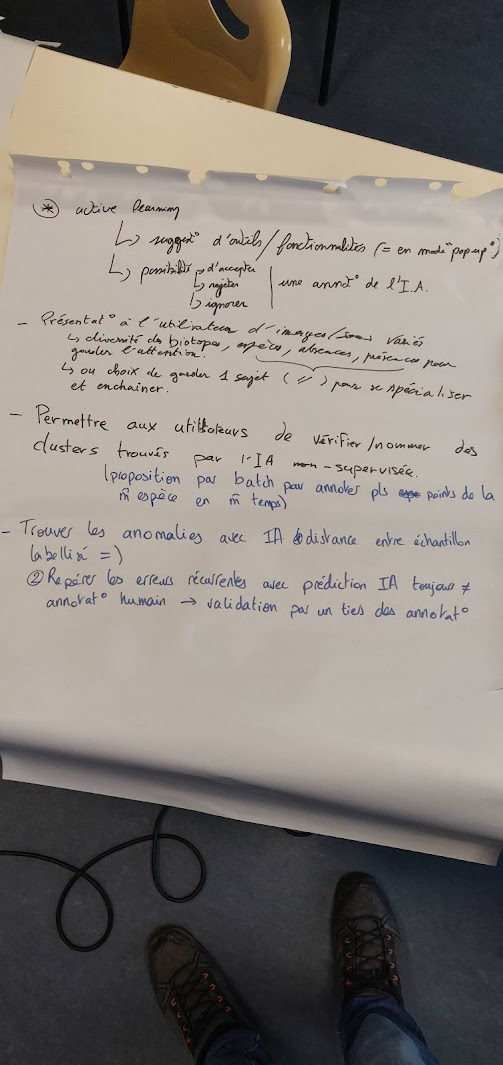 * active learning
↳ suggest° d'outils/fonctionnalités (= en mode "pop up")
↳ possibilité ↳ d'accepter
↳ rejeter
↳ ignorer
une annot° de l'I.A.
- Présentat° à l'utilisateur d'images/sons variés
↳ diversité des biotopes, espèces, absences, présences pour
garder l'attention.
↳ ou choix de garder 1 sujet ( // ) pour se spécialiser
et enchaîner.
- Permettre aux utilisateurs de vérifier/nommer des
clusters trouvés par l'IA non-supervisée.
(proposition par batch pour annoter pls points de la
m̂ espèce en m̂ temps)
- Trouver les anomalies avec IA distance entre échantillon
labellisé =)
② Repérer les erreurs récurrentes avec prédiction IA toujours ≠
annotat° humain → validation par un tiers des annotat°